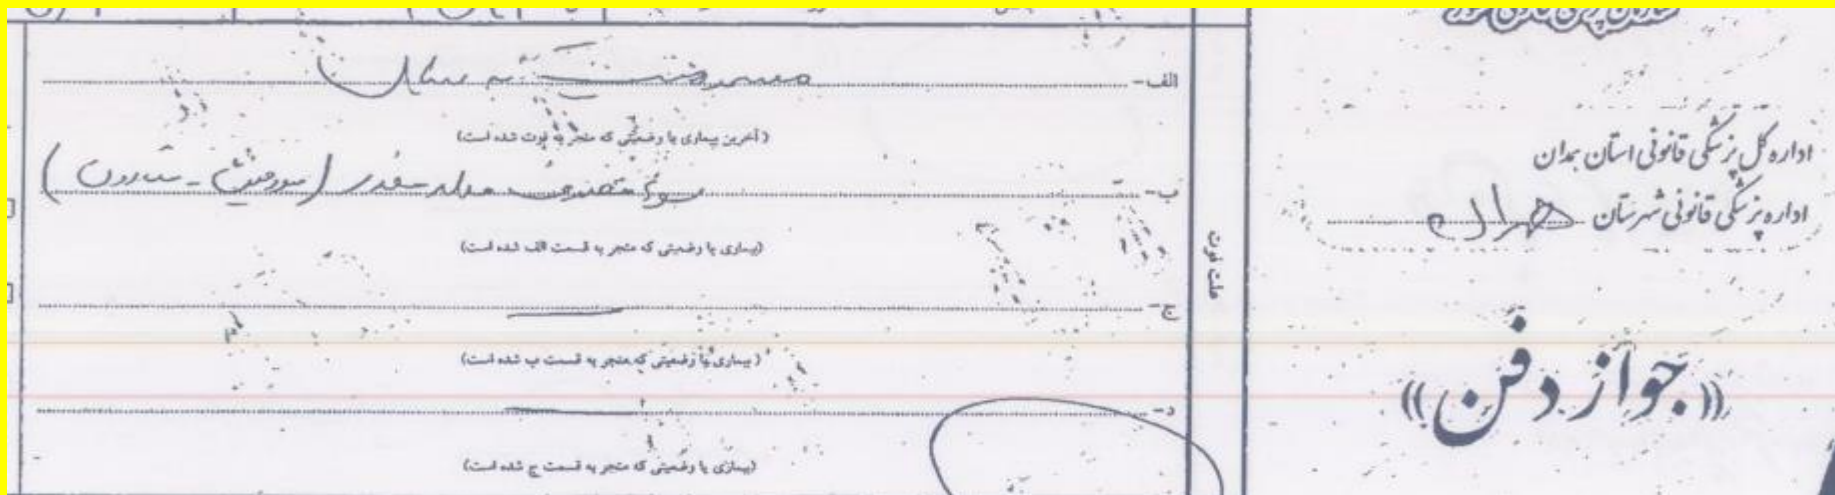 اداره کل پزشکی قانونی استان همدان
اداره پزشکی قانونی شهرستان همدان
«جواز دفن»
علت فوت
الف- مسمومیت
(آخرین بیماری یا وضعیتی که منجر به فوت شده است)
ب- سوء مصرف مواد مخدر
(بیماری یا وضعیتی که منجر به قسمت الف شده است)
ج-
(بیماری یا وضعیتی که منجر به قسمت ب شده است)
د-
(بیماری یا وضعیتی که منجر به قسمت ج شده است)